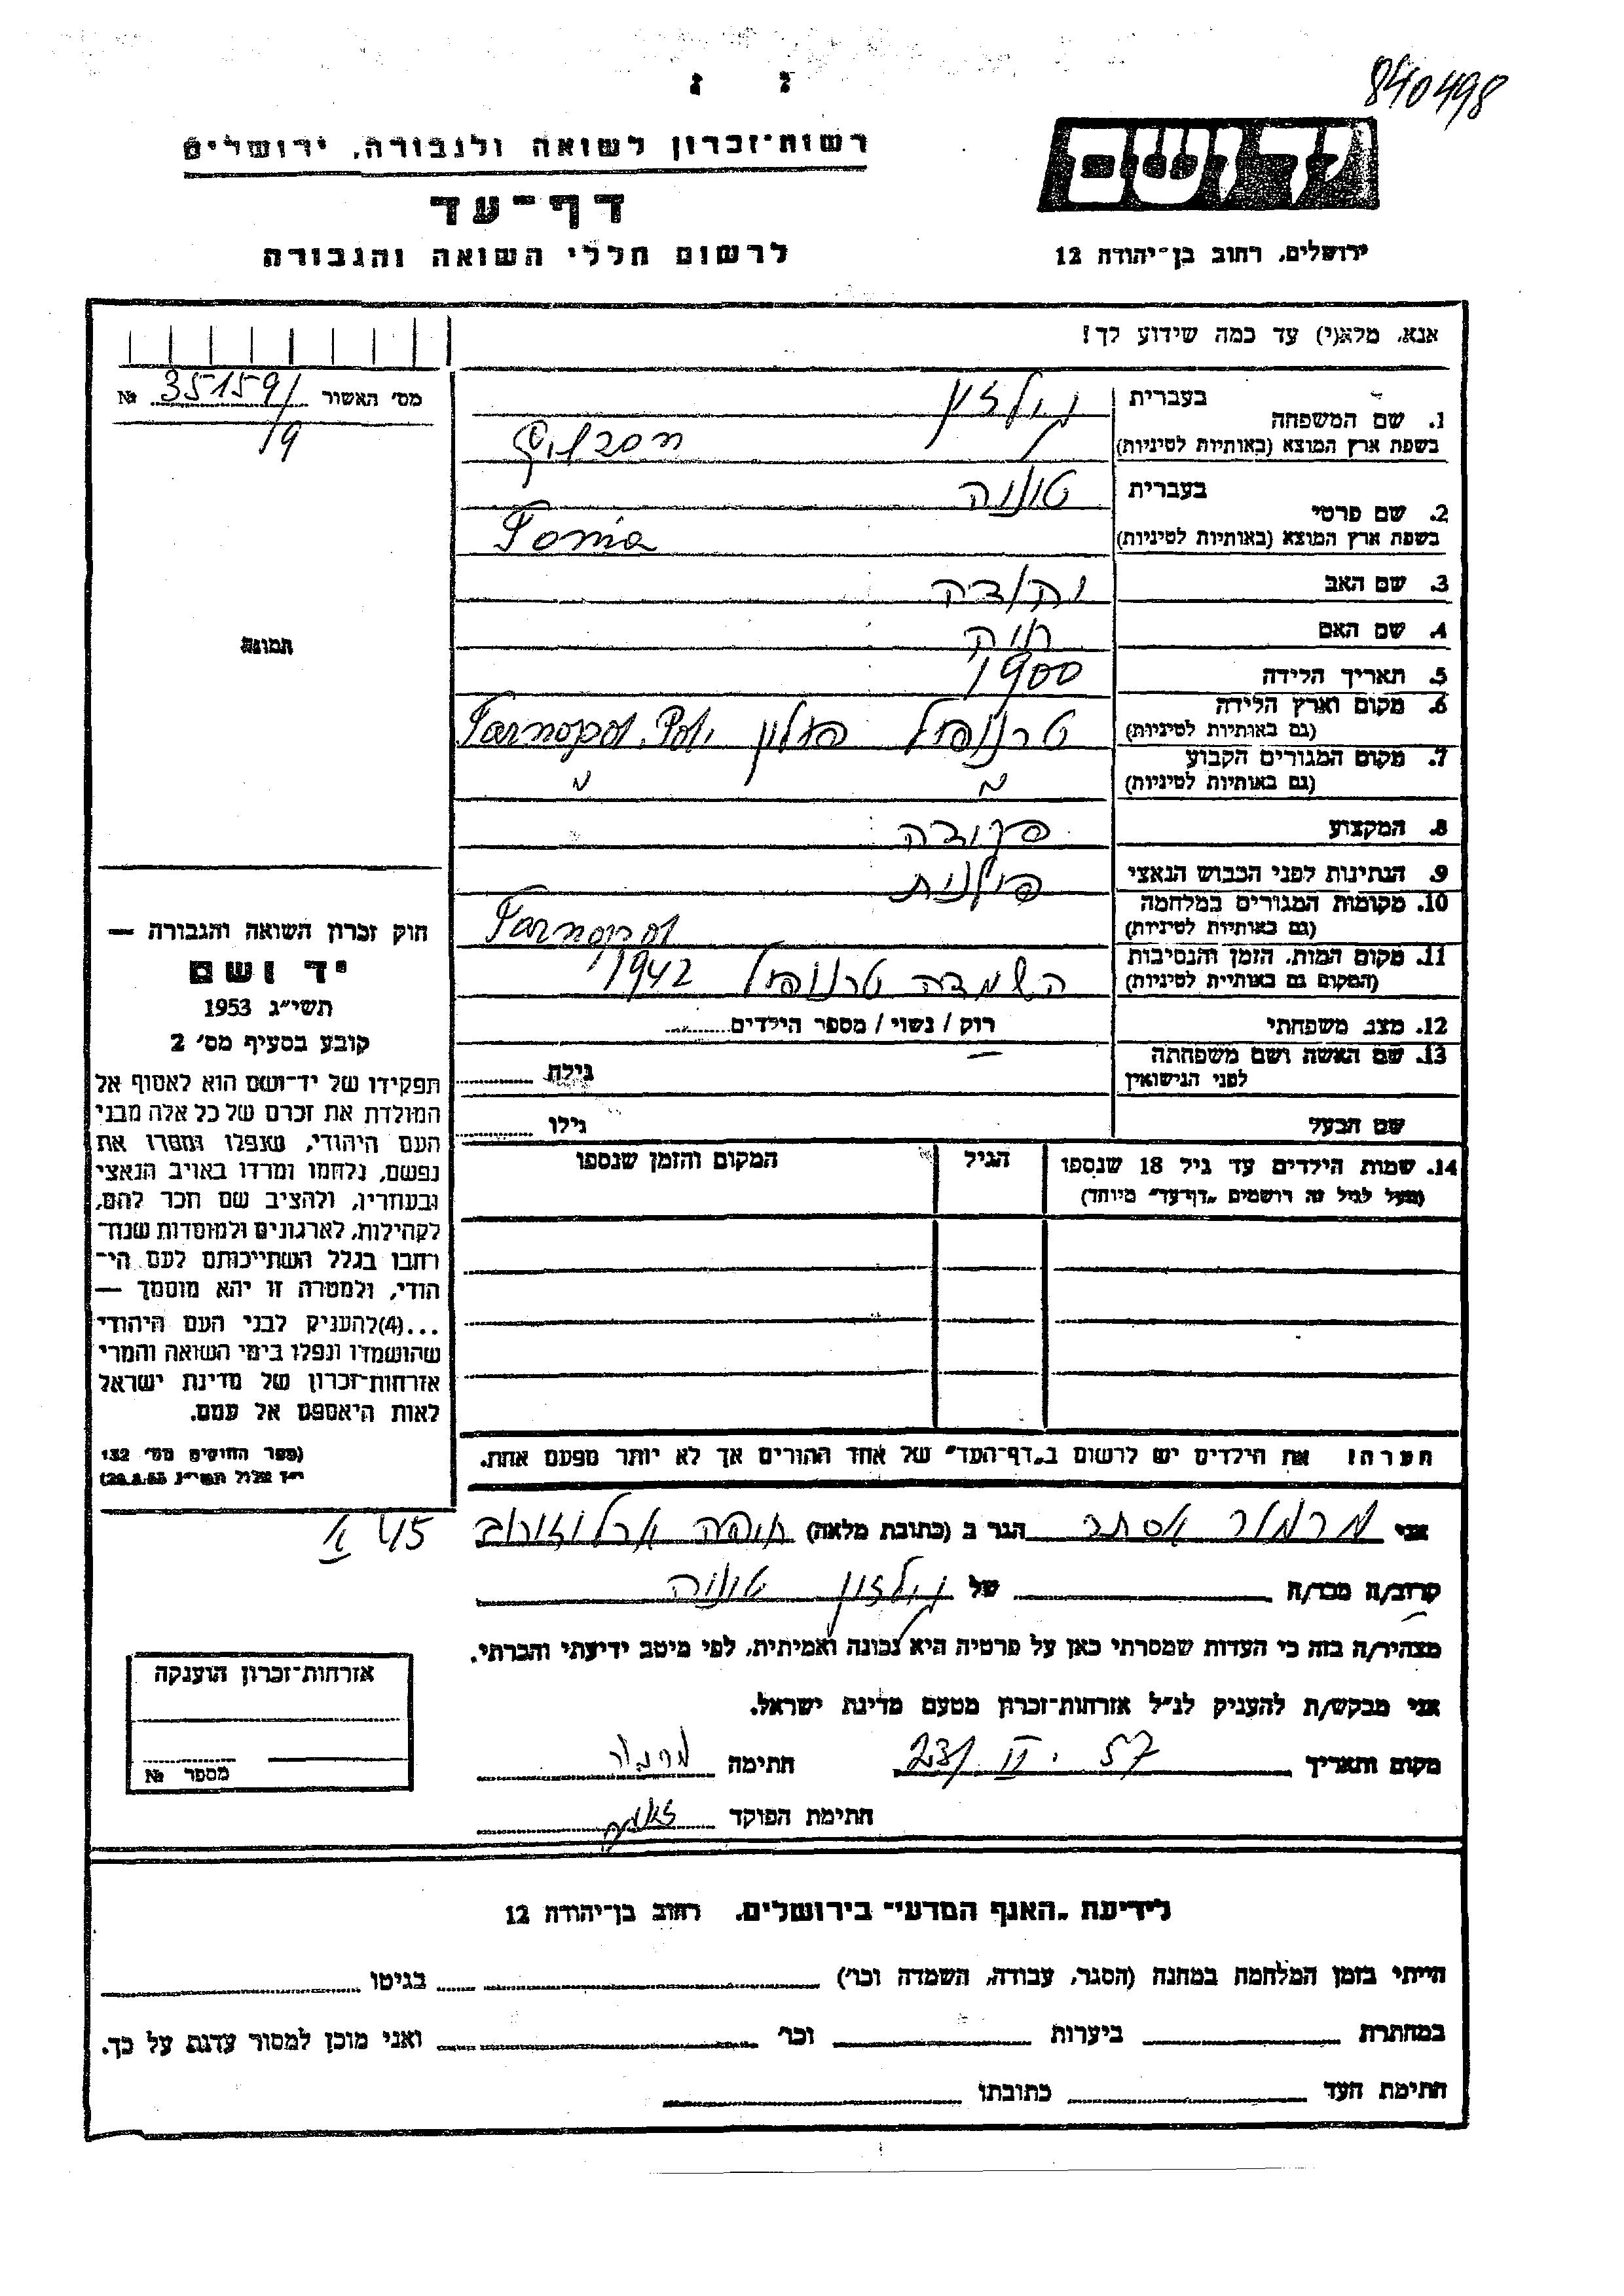 840498
י ז
רשות־זכרון לשואה ולגבורה, ירושלים
יד ושם
דף־עד
לרשום חללי השואה והגבורה
ירושלים, רחוב בן־יהודה 12
אנא, מלא(י) עד כמה שידוע לך!
מס' האשור 351591 №
19
בעברית
1. שם המשפחה
בשפת ארץ המוצא (באותיות לטיניות)
בעברית טוניה
2. שם פרטי
בשפת ארץ המוצא (באותיות לטיניות) Tonia
3. שם האב יהודה
4. שם האם חיה
5. תאריך הלידה 1900
6. מקום וארץ הלידה טרנופול פולין Tarnopol. Pol.
(גם באותיות לטיניות)
7. מקום המגורים הקבוע
(גם באותיות לטיניות) " "
8. המקצוע פקידה
9. הנתינות לפני הכבוש הנאצי פולנית
10. מקומות המגורים במלחמה Tarnopol
(גם באותיות לטיניות)
11. מקום המות, הזמן והנסיבות השמדה טרנופול 1942
(המקום גם באותיות לטיניות)
12. מצב משפחתי רוק / נשוי / מספר הילדים
13. שם האשה ושם משפחתה גילה
לפני הנישואין
שם הבעל גילו
14. שמות הילדים עד גיל 18 שנספו הגיל המקום והזמן שנספו
(מעל לגיל זה רושמים „דף־עד" מיוחד)
תמונה
חוק זכרון השואה והגבורה —
יד ושם
תשי״ג 1953
קובע בסעיף מס' 2
תפקידו של יד־ושם הוא לאסוף אל
המולדת את זכרם של כל אלה מבני
העם היהודי, שנפלו ומסרו את
נפשם, נלחמו ומרדו באויב הנאצי
ובעוזריו, ולהציב שם וזכר להם,
לקהילות, לארגונים ולמוסדות שנח־
רבו בגלל השתייכותם לעם הי־
הודי, ולמטרה זו יהא מוסמך —
...(4)להעניק לבני העם היהודי
שהושמדו ונפלו בימי השואה והמרי
אזרחות־זכרון של מדינת ישראל
לאות היאספם אל עמם.
(ספר החוקים מס' 132
י״ז אלול תשי״ג, 28.8.53)
הערה! את הילדים יש לרשום ב„דף־העד" של אחד ההורים אך לא יותר מפעם אחת.
אני אסתר הגר ב (כתובת מלאה) חיפה ארלוזורוב 45
קרוב/ה מכר/ה של טוניה
מצהיר/ה בזה כי העדות שמסרתי כאן על פרטיה היא נכונה ואמיתית, לפי מיטב ידיעתי והכרתי.
אני מבקש/ת להעניק לנ״ל אזרחות־זכרון מטעם מדינת ישראל.
מקום ותאריך 23/ II . 57 חתימה
חתימת הפוקד
אזרחות־זכרון הוענקה
מספר №
לידיעת „האגף המדעי" בירושלים, רחוב בן־יהודה 12
הייתי בזמן המלחמה במחנה (הסגר, עבודה, השמדה וכו') בגיטו
במחתרת ביערות וכו' ואני מוכן למסור עדות על כך.
חתימת העד כתובתו